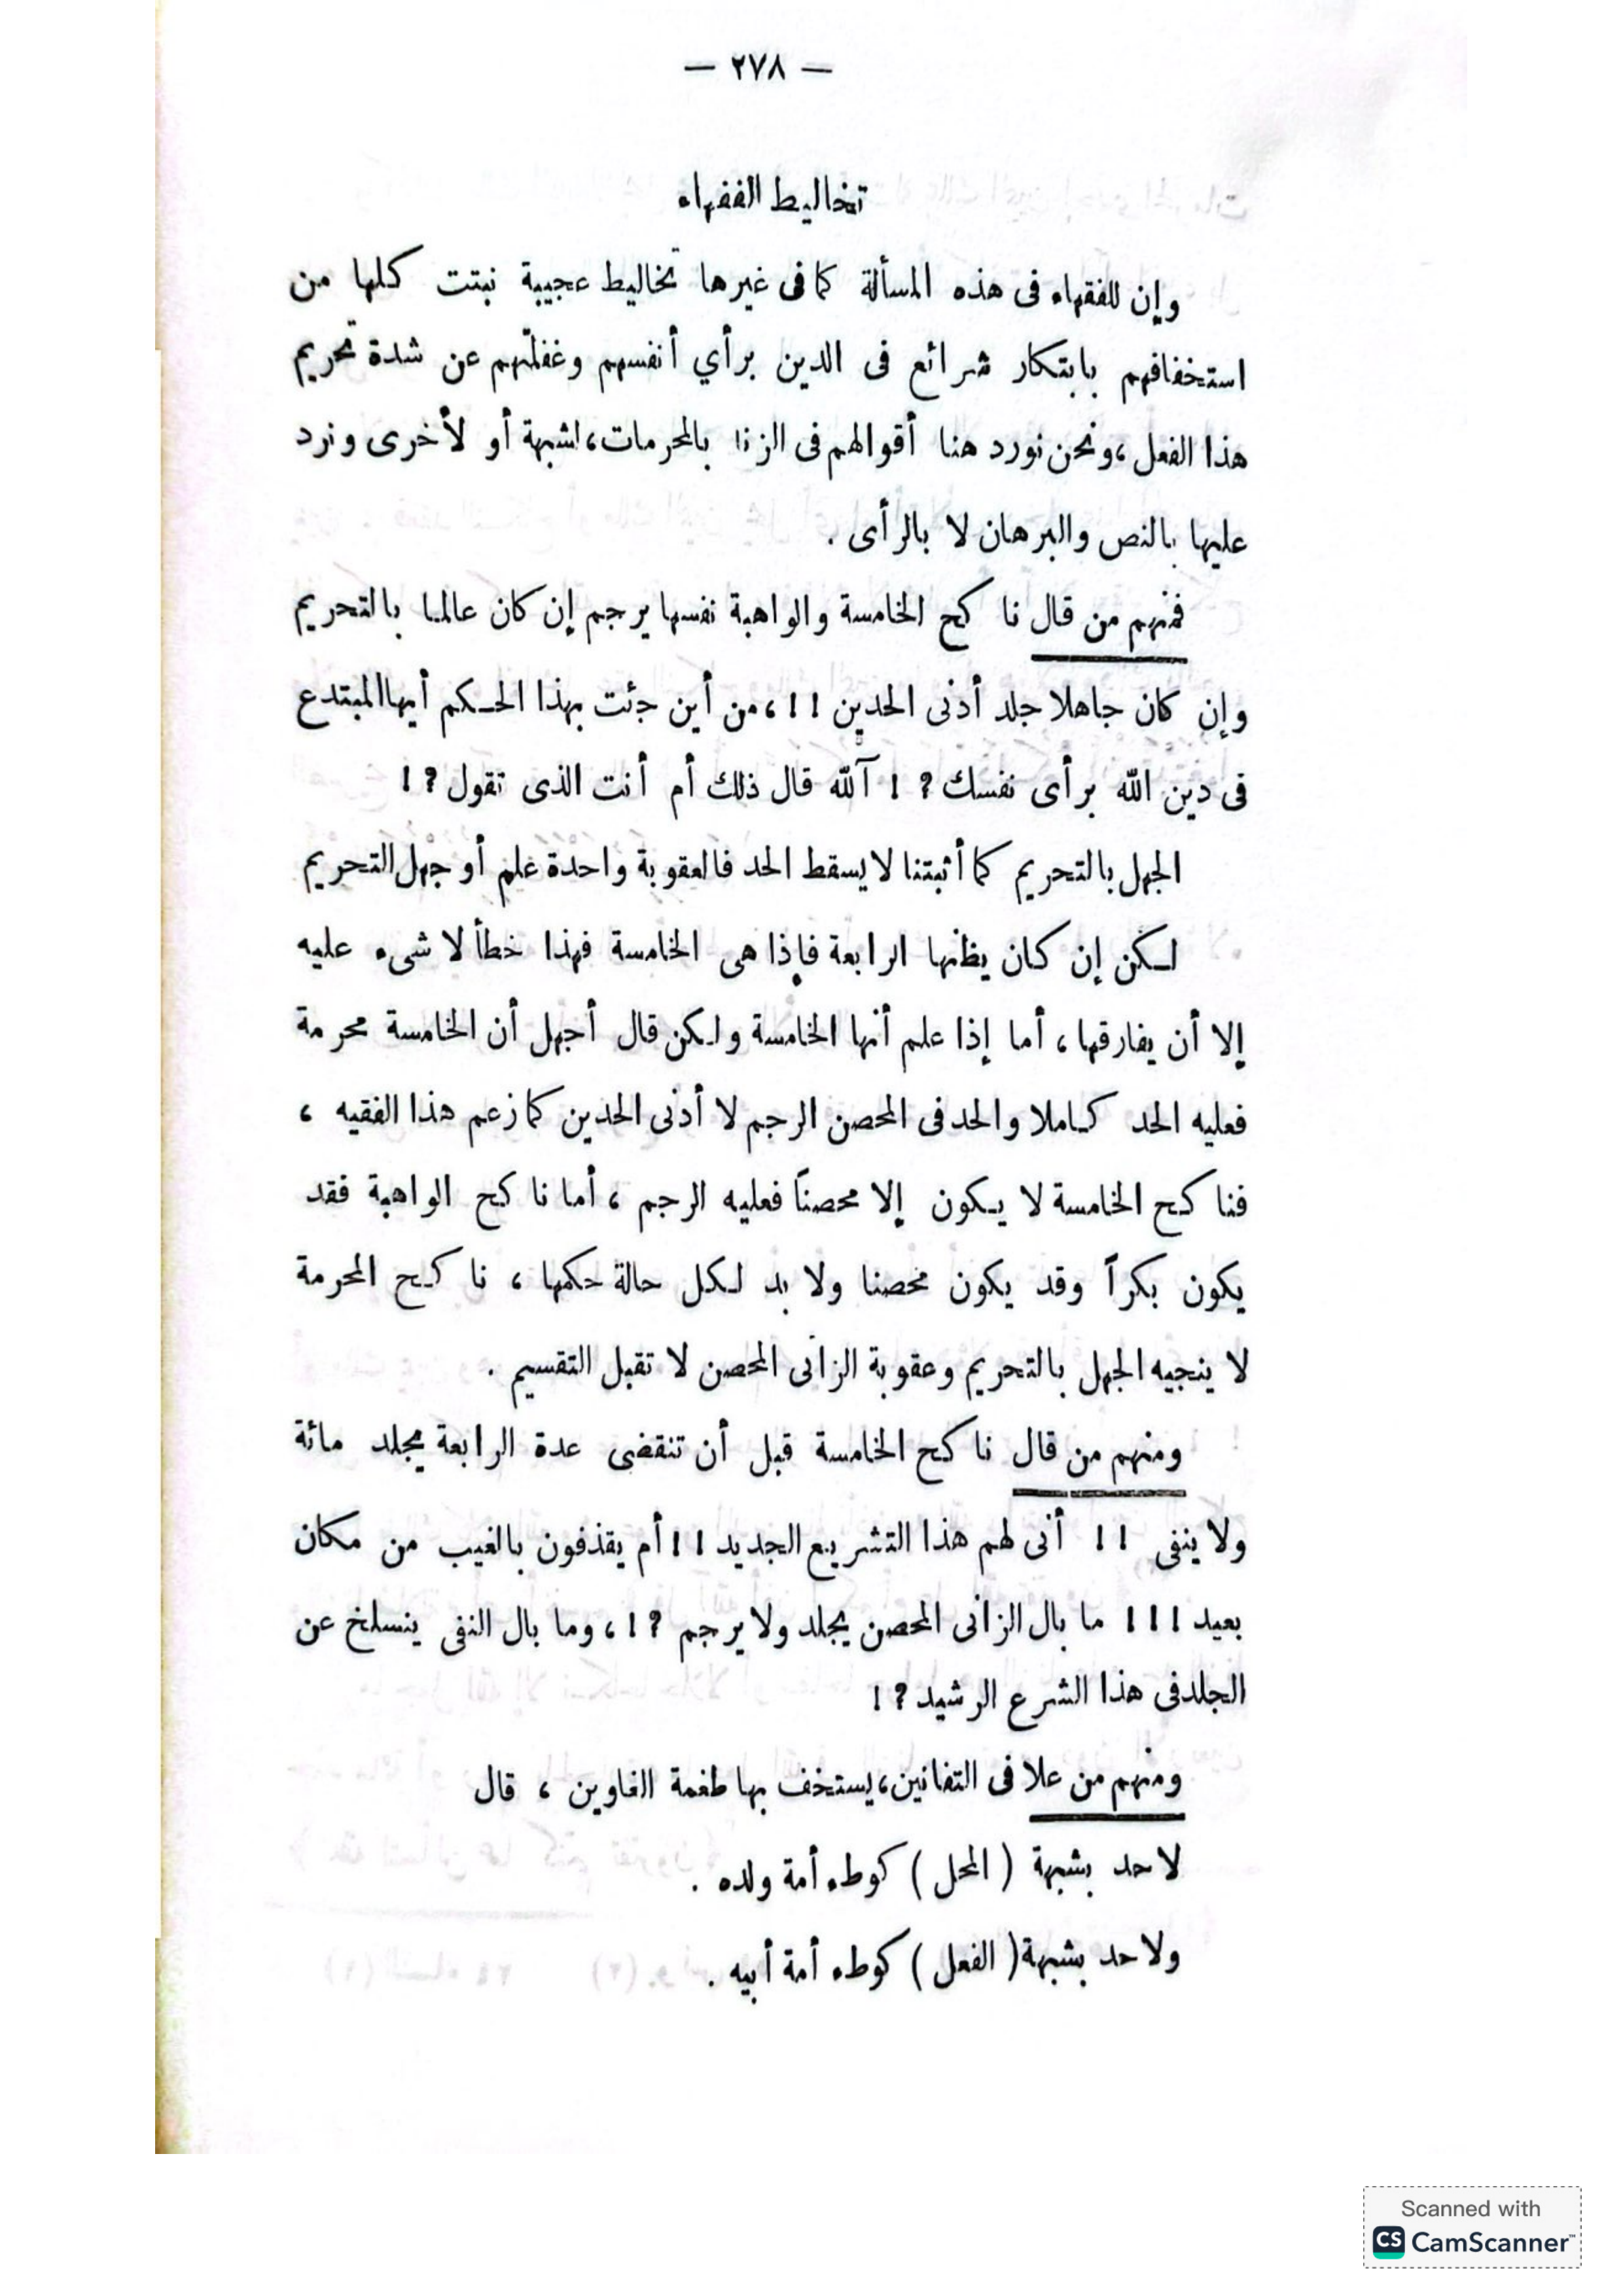 — ٢٧٨ —
تخاليط الفقهاء
وإن للفقهاء فى هذه المسألة كما فى غيرها تخاليط عجيبة نبتت كلها من
استخفافهم بابتكار شرائع فى الدين برأي أنفسهم وغفلتهم عن شدة تحريم
هذا الفعل، ونحن نورد هنا أقوالهم فى الزنا بالمحرمات، لشبهة أو لأخرى ونرد
عليها بالنص والبرهان لا بالرأى .
فمنهم من قال ناكح الخامسة والواهبة نفسها يرجم إن كان عالما بالتحريم
وإن كان جاهلا جلد أدنى الحدين !!، من أين جئت بهذا الحكم أيها المبتدع
فى دين الله برأى نفسك ؟ ! آلله قال ذلك أم أنت الذى تقول ؟ !
الجهل بالتحريم كما أثبتنا لا يسقط الحد فالعقوبة واحدة علم أو جهل التحريم
لكن إن كان يظنها الرابعة فإذا هى الخامسة فهذا خطأ لا شىء عليه
إلا أن يفارقها ، أما إذا علم أنها الخامسة ولكن قال أجهل أن الخامسة محرمة
فعليه الحد كاملا والحد فى المحصن الرجم لا أدنى الحدين كما زعم هذا الفقيه ،
فناكح الخامسة لا يكون إلا محصناً فعليه الرجم ، أما ناكح الواهبة فقد
يكون بكراً وقد يكون محصنا ولا بد لكل حالة حكمها ، ناكح المحرمة
لا ينجيه الجهل بالتحريم وعقوبة الزانى المحصن لا تقبل التقسيم .
ومنهم من قال ناكح الخامسة قبل أن تنقضى عدة الرابعة يجلد مائة
ولا ينفى !! أنى لهم هذا التشريع الجديد !! أم يقذفون بالغيب من مكان
بعيد !!! ما بال الزانى المحصن يجلد ولا يرجم ؟ !، وما بال النفى ينسلخ عن
الجلد فى هذا الشرع الرشيد ؟ !
ومنهم من علا فى التفانين، يستخف بها طغمة الغاوين ، قال
لا حد بشبهة ( المحل ) كوطء أمة ولده .
ولا حد بشبهة ( الفعل ) كوطء أمة أبيه .
Scanned with
CS CamScanner™